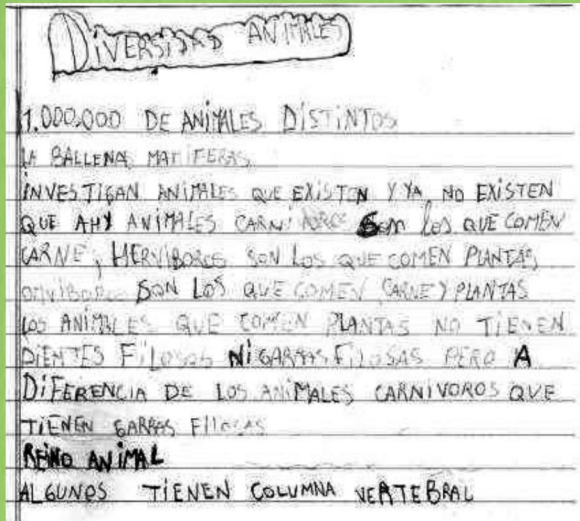 DIVERSIDAD ANIMALES
1.000.000 DE ANIMALES DISTINTOS
LA BALLENA MATIFERAS
INVESTIGAN ANIMALES QUE EXISTEN Y YA NO EXISTEN
QUE AHY ANIMALES CARNIBOROS SON LOS QUE COMEN
CARNE, HERVIBOROS SON LOS QUE COMEN PLANTAS,
OMVIBOROS SON LOS QUE COMEN CARNE Y PLANTAS
LOS ANIMALES QUE COMEN PLANTAS NO TIENEN
DIENTES FILOSOS NI GARRAS FILOSAS PERO A
DIFERENCIA DE LOS ANIMALES CARNIVOROS QUE
TIENEN GARRAS FILOSAS
REINO ANIMAL
ALGUNOS TIENEN COLUMNA VERTEBRAL